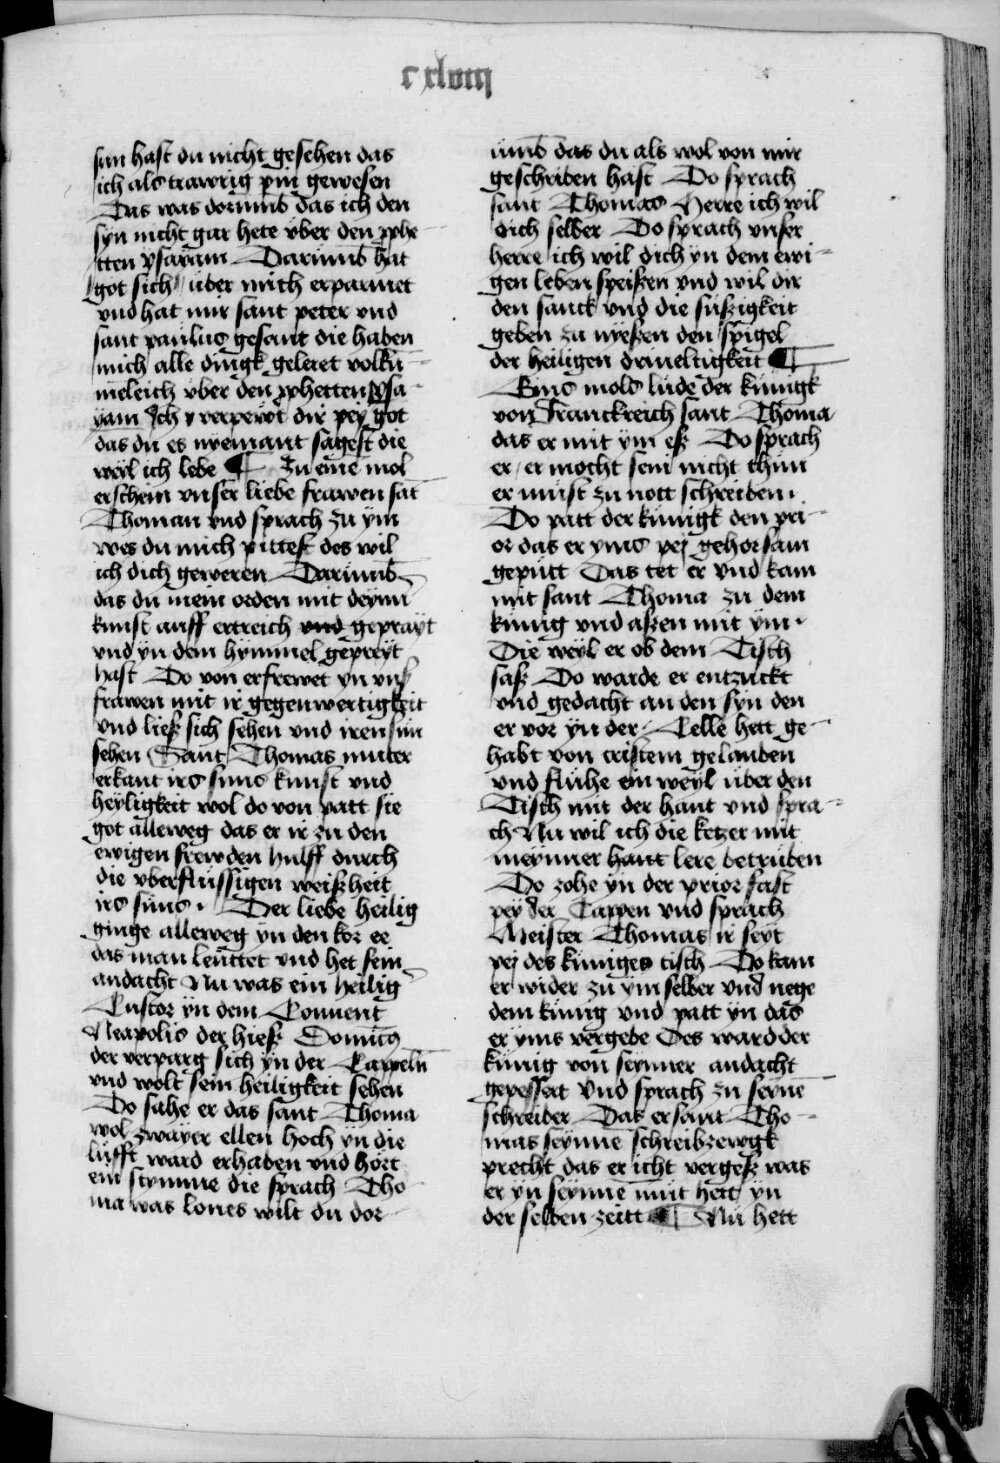 cxlviij
sun hast du nicht gesehen das
ich als trawrig pin gewesen
Das was dorumb das ich den
syn nicht gar hete vber den pphe
tten ysayam Darumb hat
got sich uber mich erparmet
vnd hat mir sant peter vnd
sant paulus gesant die haben
mich alle dingk geleret volku
meleich vber den pphetten ysa
yam Ich verpewt dir pey got
das du es nyemant sagest die
weyl ich lebe ¶ Zu eine mol
erschein vnser liebe frawen sat
Thoman vnd sprach zu ym
wes du mich pittest des wil
ich dich geweren Darumb
das du mein orden mit deynn
kunst auff ertreich vnd geprayt
vnd yn dem hymmel gepreyt
hast Do von erfrewet yn vns
frawen mit ir gegenwertigkeit
vnd ließ sich sehen vnd iren sun
sehen Sant Thomas muter
erkant irs suns kunst vnd
heyligkeit wol do von patt sie
got alleweg das er ir zu den
ewigen frewden hulff durch
die vberflussigen weißheit
irs suns · Der liebe heilig
ginge alleweg yn den kor ee
das man leuttet vnd het sein
andacht Nu was ein heilig
Custor yn dem Conuent
Neapolis der hieß Dominicus
der verparg sich yn der Cappeln
vnd wolt sein heiligkeit sehen
Do sahe er das sant Thoma
wol zwayer ellen hoch yn die
lufft ward erhaben vnd hort
ein stymme die sprach Tho
ma was lones wilt du dor
umb das du als wol von mir
geschriben hast Do sprach
sant Thomas Herre ich wil
dich selber Do sprach vnser
herre ich wil dich yn dem ewi
gen leben speißen vnd wil dir
den sanck vnd die sußigkeit
geben zu nyeßen den spigel
der heiligen driueltigkeit ¶
Eins mols lude der kunigk
von Franckreich sant Thoma
das er mit ym eß Do sprach
er er mocht sein nicht thun
er must zu nott schreiben ·
Do patt der kunigk den pri
or das er yms pey gehorsam
geputt Das tet er vnd kam
mit sant Thoma zu dem
kunig vnd aßen mit ym ·
Die weyl er ob dem Tisch
saß Do warde er entzuckt
vnd gedacht an den syn den
er vor yn der Celle hett ge
habt von cristem gelauben
vnd sluhe ein weyl uber den
Tisch mit der hant vnd spra
ch Nu wil ich die ketzer mit
meynner hant lere betruben
Do zohe yn der prior fast
pey der Cappen vnd sprach
Meister Thomas ir seyt
pej des kuniges tisch Do kam
er wider zu ym selber vnd nege
dem kunig vnd patt yn das
er yms vergebe Des ward der
kunig von seynner andacht
gepessert vnd sprach zu seyne
schreiber Das er sant Tho
mas seynne schreibzewgk
precht das er icht vergeß was
er yn seynne mut hett yn
der selben zeitt ¶ Nu hett